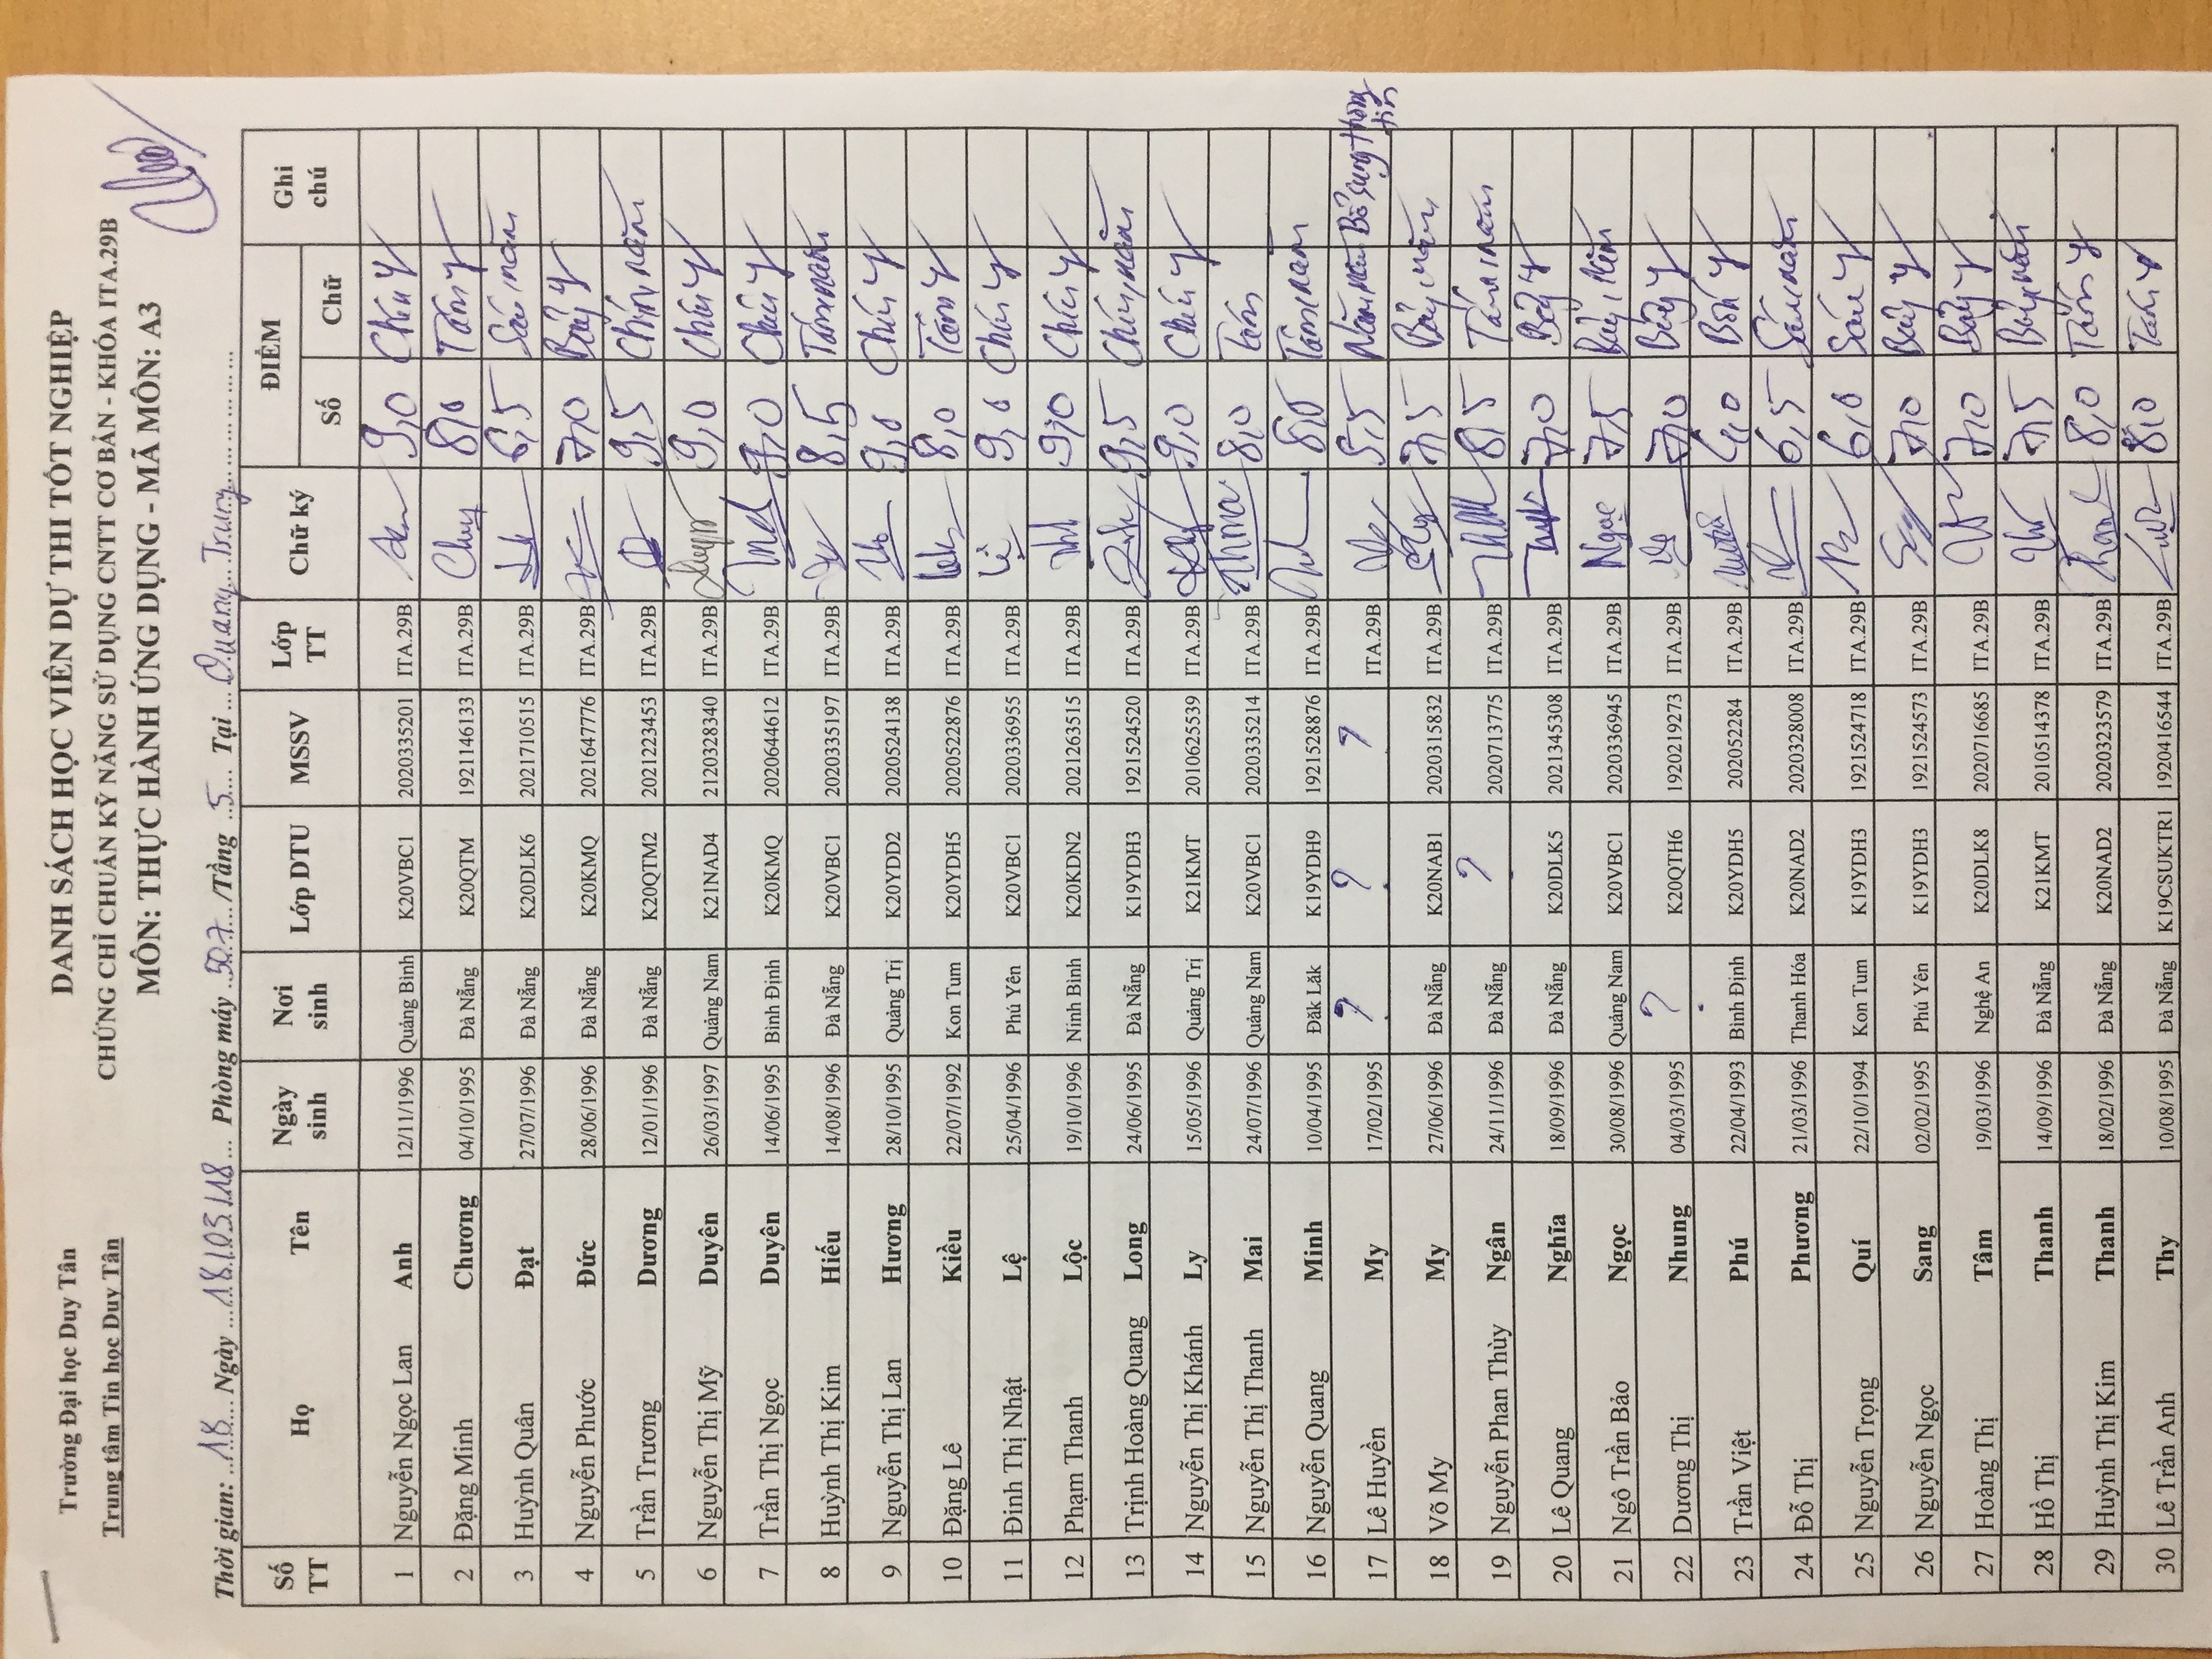 Trường Đại học Duy Tân
Trung tâm Tin học Duy Tân
DANH SÁCH HỌC VIÊN DỰ THI TỐT NGHIỆP
CHỨNG CHỈ CHUẨN KỸ NĂNG SỬ DỤNG CNTT CƠ BẢN - KHÓA ITA.29B
MÔN: THỰC HÀNH ỨNG DỤNG - MÃ MÔN: A3
Thời gian: ..18.... Ngày ....18.1.03.1.18... Phòng máy ..507.../Tầng ..5.... Tại ...Quang...Trung....
Số TT Họ Tên Ngày sinh Nơi sinh Lớp DTU MSSV Lớp TT Chữ ký ĐIỂM Số Chữ Ghi chú
1 Nguyễn Ngọc Lan Anh 12/11/1996 Quảng Bình K20VBC1 2020335201 ITA.29B 9,0 Chín y
2 Đặng Minh Chương 04/10/1995 Đà Nẵng K20QTM 1921146133 ITA.29B 8,0 Tám y
3 Huỳnh Quân Đạt 27/07/1996 Đà Nẵng K20DLK6 2021710515 ITA.29B 6,5 Sáu năm
4 Nguyễn Phước Đức 28/06/1996 Đà Nẵng K20KMQ 2021647776 ITA.29B 7,0 Bảy y
5 Trần Trương Dương 12/01/1996 Đà Nẵng K20QTM2 2021223453 ITA.29B 9,5 Chín, năm
6 Nguyễn Thị Mỹ Duyên 26/03/1997 Quảng Nam K21NAD4 2120328340 ITA.29B 9,0 Chín y
7 Trần Thị Ngọc Duyên 14/06/1995 Bình Định K20KMQ 2020644612 ITA.29B 9,0 Chín y
8 Huỳnh Thị Kim Hiếu 14/08/1996 Đà Nẵng K20VBC1 2020335197 ITA.29B 8,5 Tám năm
9 Nguyễn Thị Lan Hương 28/10/1995 Quảng Trị K20YDD2 2020524138 ITA.29B 9,0 Chín y
10 Đặng Lê Kiều 22/07/1992 Kon Tum K20YDH5 2020522876 ITA.29B 8,0 Tám y
11 Đinh Thị Nhật Lệ 25/04/1996 Phú Yên K20VBC1 2020336955 ITA.29B Lệ 9,0 Chín y
12 Phạm Thanh Lộc 19/10/1996 Ninh Bình K20KDN2 2021263515 ITA.29B 9,0 Chín y
13 Trịnh Hoàng Quang Long 24/06/1995 Đà Nẵng K19YDH3 1921524520 ITA.29B 9,5 Chín, năm
14 Nguyễn Thị Khánh Ly 15/05/1996 Quảng Trị K21KMT 2010625539 ITA.29B 9,0 Chín y
15 Nguyễn Thị Thanh Mai 24/07/1996 Quảng Nam K20VBC1 2020335214 ITA.29B 8,0 Tám
16 Nguyễn Quang Minh 10/04/1995 Đăk Lăk K19YDH9 1921528876 ITA.29B Tám năm
17 Lê Huyền My 17/02/1995 ? ? ? ITA.29B 5,5 Năm năm Bổ sung thông tin
18 Võ My My 27/06/1996 Đà Nẵng K20NAB1 2020315832 ITA.29B 7,5 Bảy năm
19 Nguyễn Phan Thùy Ngân 24/11/1996 Đà Nẵng ? 2020713775 ITA.29B 8,5 Tám năm
20 Lê Quang Nghĩa 18/09/1996 Đà Nẵng K20DLK5 2021345308 ITA.29B 7,0 Bảy y
21 Ngô Trần Bảo Ngọc 30/08/1996 Quảng Nam K20VBC1 2020336945 ITA.29B Ngọc 7,5 Bảy, năm
22 Dương Thị Nhung 04/03/1995 ? K20QTH6 1920219273 ITA.29B 7,0 Bảy y
23 Trần Việt Phú 22/04/1993 Bình Định K20YDH5 202052284 ITA.29B 4,0 Bốn y
24 Đỗ Thị Phương 21/03/1996 Thanh Hóa K20NAD2 2020328008 ITA.29B 6,5 Sáu năm
25 Nguyễn Trọng Quí 22/10/1994 Kon Tum K19YDH3 1921524718 ITA.29B 6,0 Sáu y
26 Nguyễn Ngọc Sang 02/02/1995 Phú Yên K19YDH3 1921524573 ITA.29B 7,0 Bảy y
27 Hoàng Thị Tâm 19/03/1996 Nghệ An K20DLK8 2020716685 ITA.29B 7,0 Bảy y
28 Hồ Thị Thanh 14/09/1996 Đà Nẵng K21KMT 2010514378 ITA.29B 7,5 Bảy năm
29 Huỳnh Thị Kim Thanh 18/02/1996 Đà Nẵng K20NAD2 2020323579 ITA.29B 8,0 Tám y
30 Lê Trần Anh Thy 10/08/1995 Đà Nẵng K19CSUKTR1 1920416544 ITA.29B 8,0 Tám y